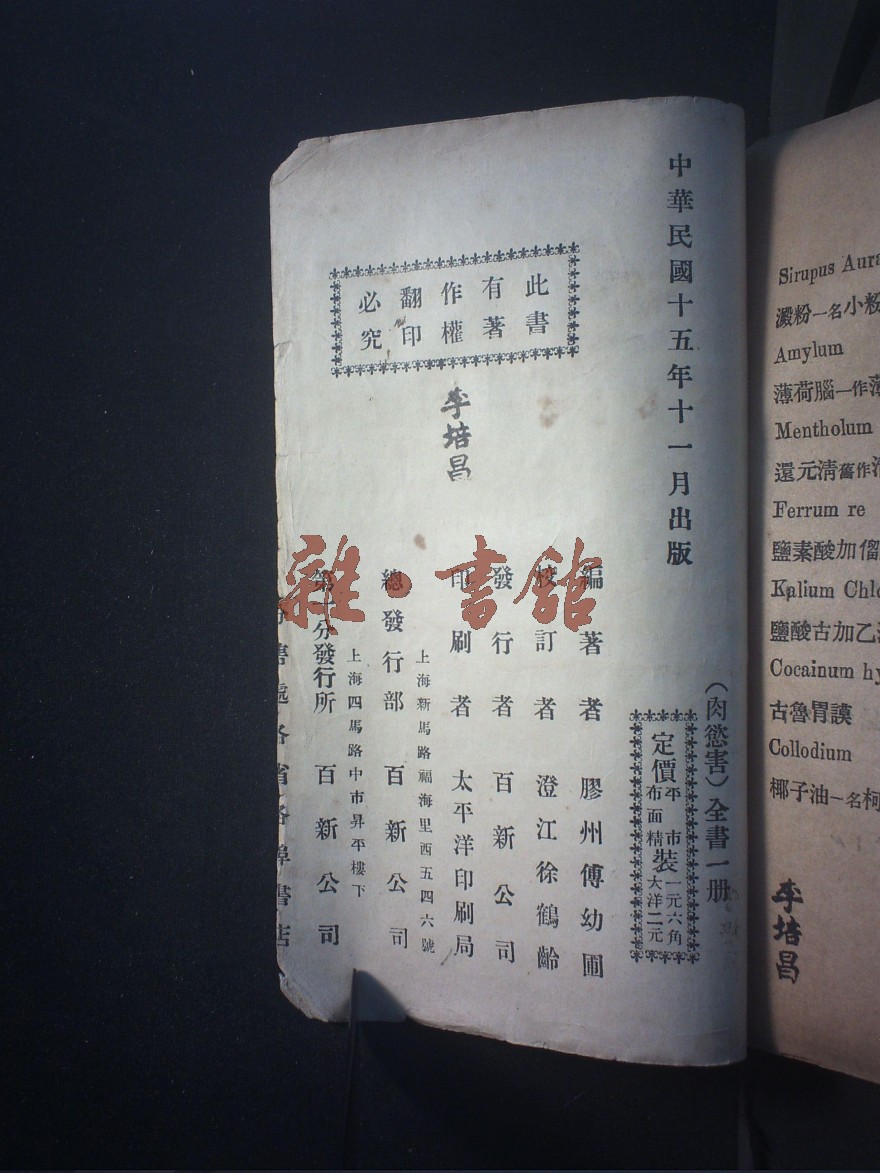 中華民國十五年十一月出版
（肉慾害）全書一册
定價平裝一元六角
布面精裝大洋二元
此書
有著
作權
翻印
必究
李培昌
編著者 膠州傅幼圃
校訂者 澄江徐鶴齡
發行者 百新公司
印刷者 太平洋印刷局
上海新馬路福海里西五四六號
總發行部 百新公司
上海四馬路中市昇平樓下
第一分發行所 百新公司
分售處各省各埠書店
雜·書館
Sirupus Aura
澱粉一名小粉
Amylum
薄荷腦一作薄
Mentholum
還元淸舊作
Ferrum re
鹽素酸加僧
Kalium Chlo
鹽酸古加乙
Cocainum hy
古魯胃謨
Collodium
椰子油一名柯
李培昌